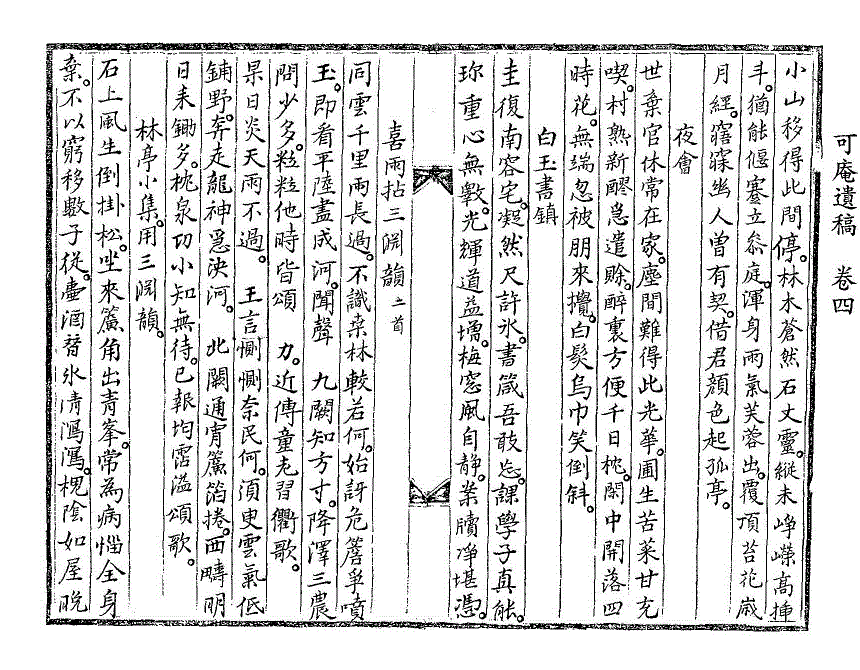 可庵遺稿　卷四
小山移得此間停。林木蒼然石丈靈。縱未崢嶸高揷
斗。猶能偃蹇立叅庭。渾身雨氣芙蓉出。覆頂苔花歲
月經。窪窿幽人曾有契。借君顔色起孤亭。
夜會
世棄官休常在家。塵間難得此光華。圃生苦菜甘充
喫。村熟新醪急遣賖。醉裏方便千日枕。閑中開落四
時花。無端忽被朋來攪。白髮烏巾笑倒斜。
白玉書鎭
圭復南容宅。凝然尺許氷。書箴吾敢忘。課學子眞能。
珎重心無斁。光輝道益增。梅窓風自靜。業牘凈堪憑。
喜雨拈三淵韻 二首
同雲千里雨長過。不識桑林較若何。始訝危簷爭噴
玉。卽看平陸盡成河。聞聲　九闕知方寸。降澤三農
問少多。粒粒他時皆頌　力。近傳童老習衢歌。
杲日炎天雨不過。　王言惻惻奈民何。須臾雲氣低
鋪野。奔走龍神爲決河。　北闕通宵簾箔捲。西疇明
日耒鋤多。枕泉功小知無待。已報均霑溢頌歌。
林亭小集。用三淵韻。
石上風生倒掛松。坐來簾角出靑峯。常爲病惱全身
棄。不以窮移數子從。壺酒
氷淸瀉瀉。槐陰如屋晩